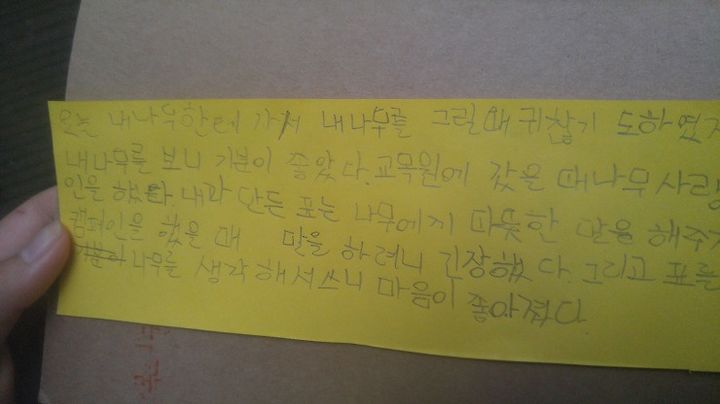 오늘 내나무한테 가서 내나무를 그릴때 귀찮기 도하였지
내나무를 보니 기분이 좋았다. 교목원에 갔을 때나무사랑
인을 했다. 내과 만든 표는 나무에게 따뜻한 말을 해주
캠페인을 했을 때 말을 하려니 긴장했다. 그리고 표를
나무를 생각해서쓰니 마음이 좋아졌다.